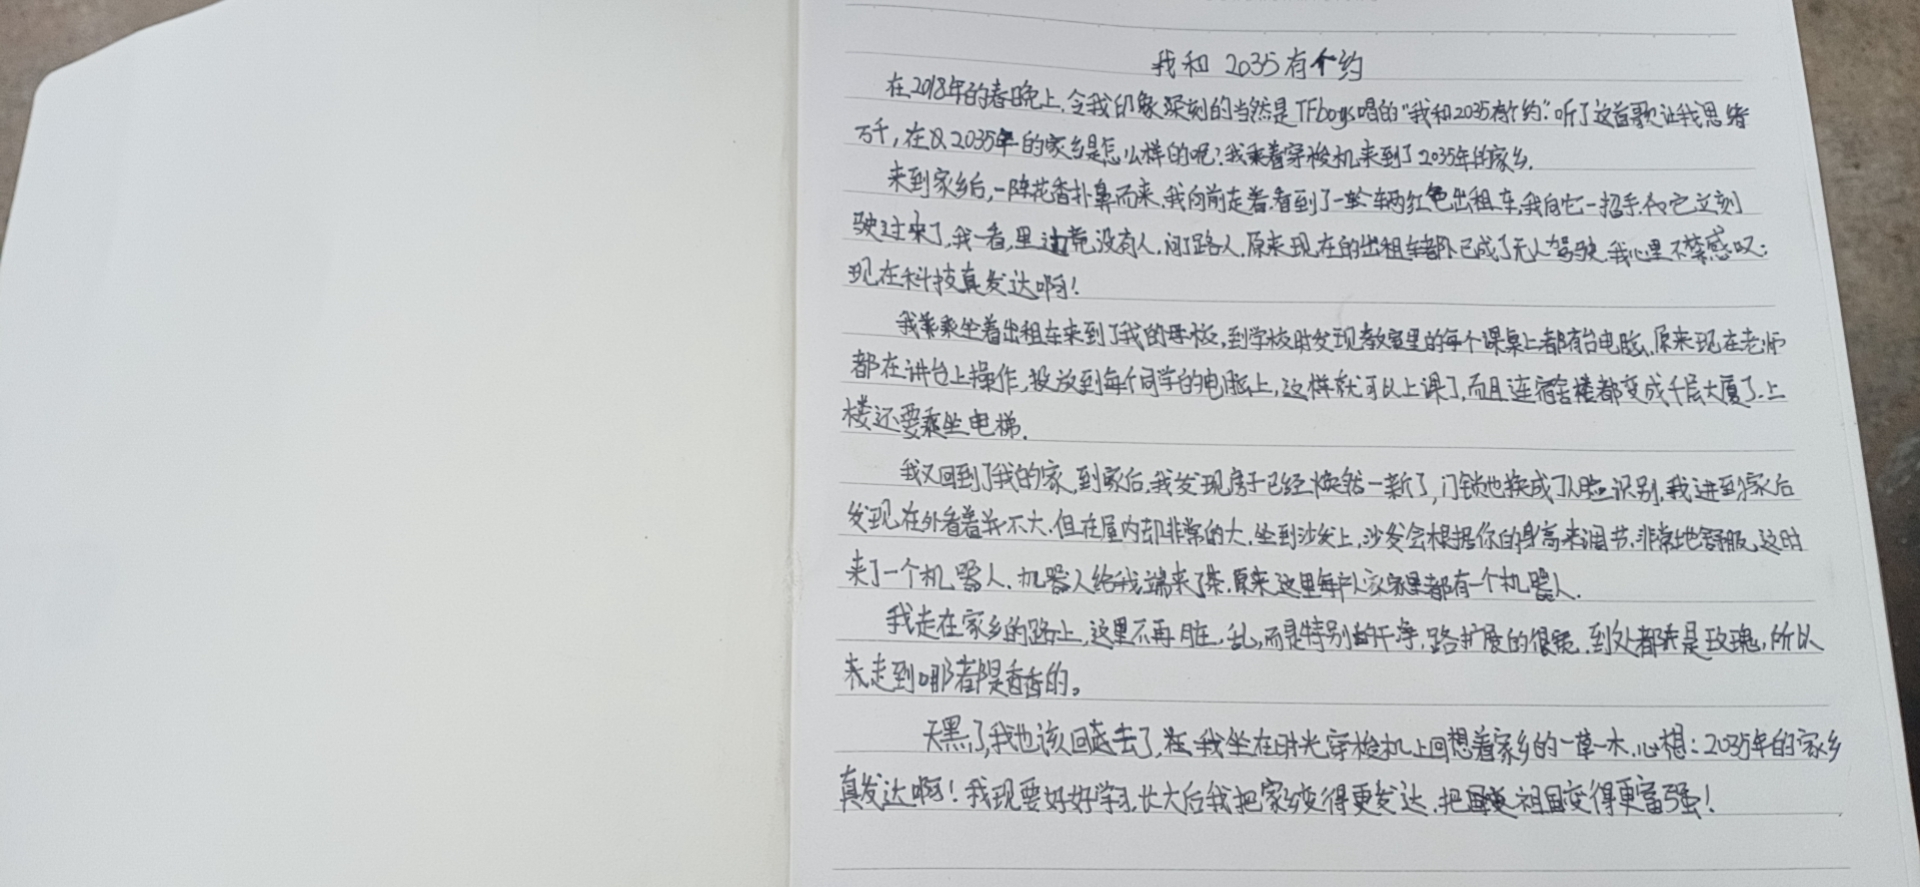 我和 2035有个约
在2018年的春晚上,令我印象深刻的当然是TFboys唱的"我和2035有个约".听了这首歌让我思绪
万千,在以2035年的家乡是怎么样的呢?我乘着穿梭机来到了2035年的家乡.
来到家乡后,一阵花香扑鼻而来,我向前走着,看到了一辆红色出租车,我向它一招手,它立刻
驶过来了,我一看,里边竟没有人,问了路人,原来现在的出租车都已成了无人驾驶,我心里不禁感叹:
现在科技真发达啊!
我乘坐着出租车来到了我的母校,到学校时发现教室里的每个课桌上都有台电脑,原来现在老师
都在讲台上操作,投放到每个同学的电脑上,这样就可以上课了,而且连宿舍楼都变成千层大厦了,上
楼还要乘坐电梯.
我又回到了我的家,到家后,我发现房子已经焕然一新了,门锁也换成了人脸识别,我进到家后
发现在外看着并不大,但在屋内却非常的大,坐到沙发上,沙发会根据你的身高来调节,非常地舒服,这时
来了一个机器人,机器人给我端来了茶,原来这里每户人家家里都有一个机器人.
我走在家乡的路上,这里不再脏,乱,而是特别的干净,路扩展的很宽,到处都是玫瑰,所以
我走到哪都是香香的。
天黑了,我也该回去了,我坐在时光穿梭机上回想着家乡的一草一木,心想:2035年的家乡
真发达啊!我现要好好学习,长大后我把家乡变得更发达,把祖国变得更富强!